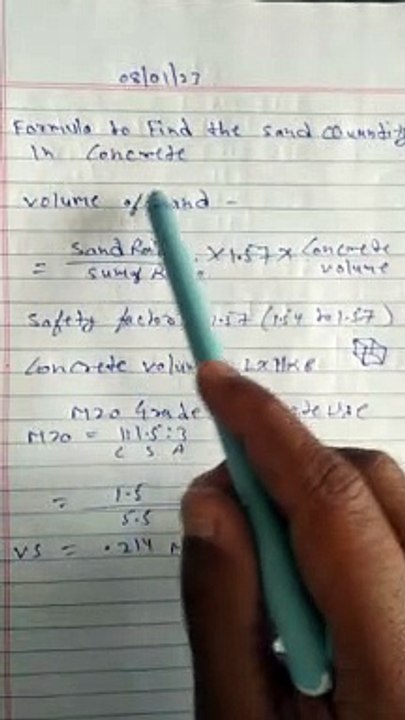 08/01/27
Formula to Find the Sand Quantity
In Concrete
Volume of Sand -
= Sand × 1.57 × Concrete volume
Sum of
Safety factor 1.57 (1.54 to 1.57)
Concrete volume L×H×B
M20 Grade
M20 = 1:1.5:3
C S A
= 1.5
5.5
VS = .214